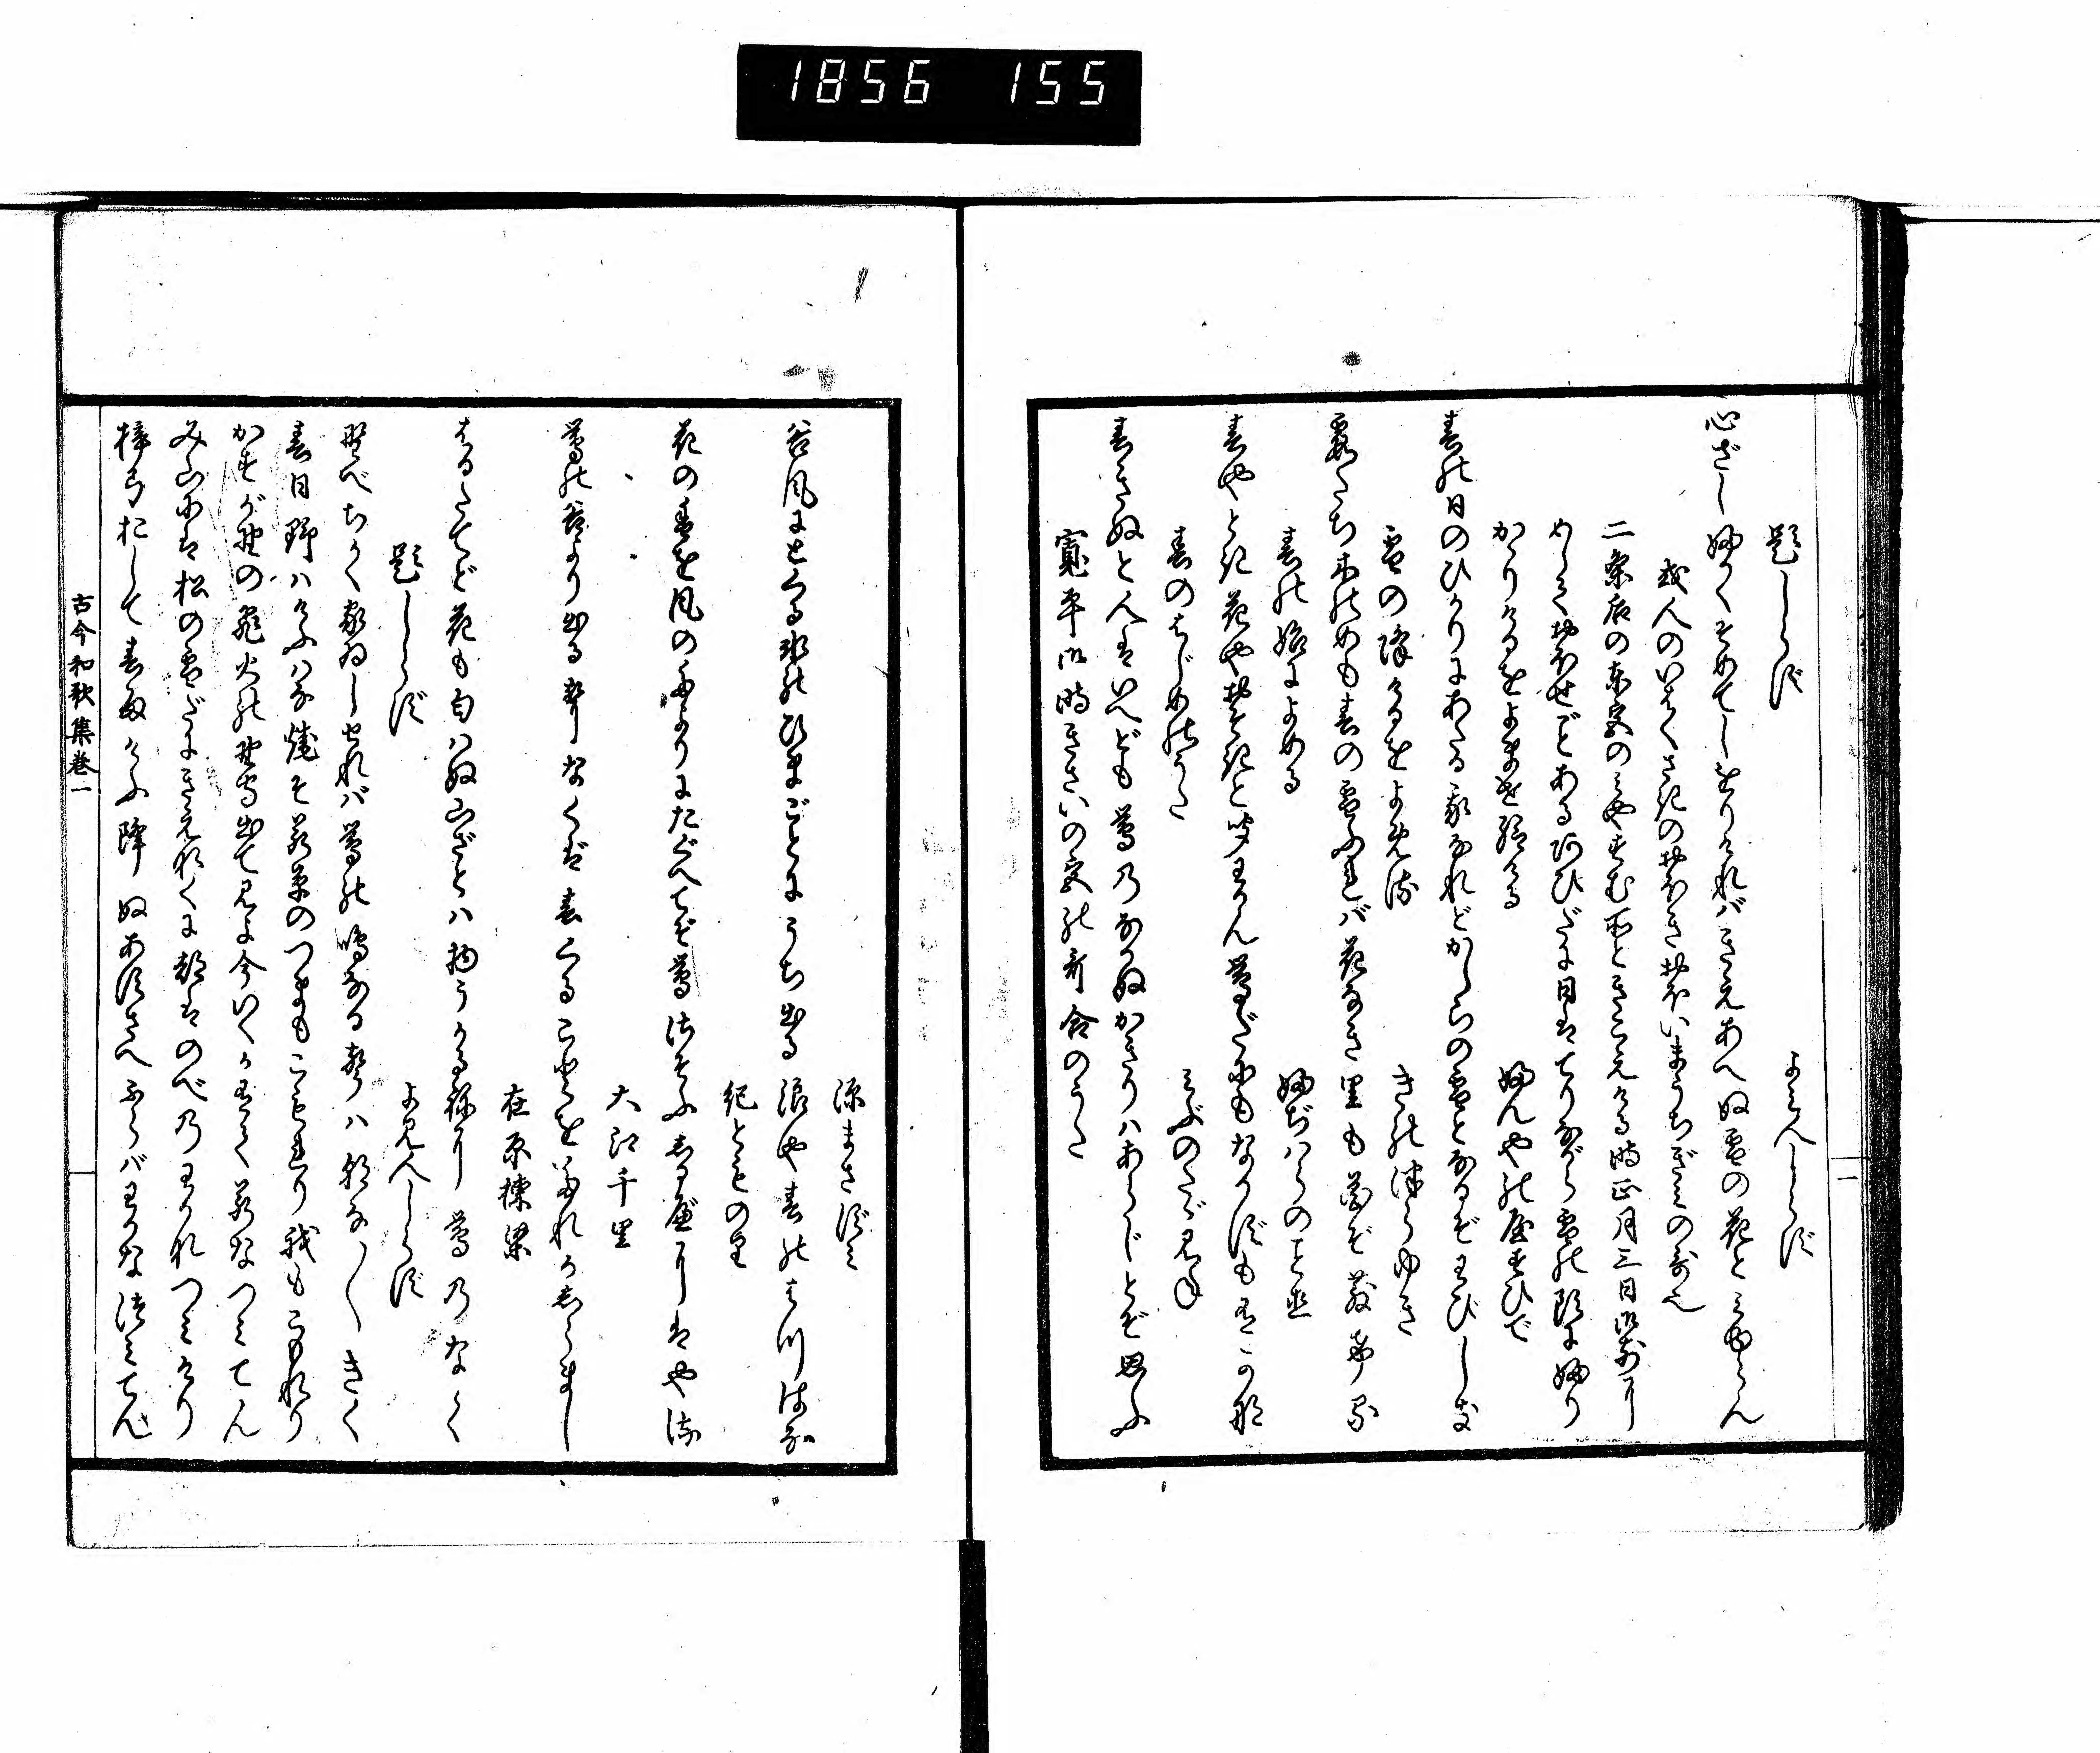 1856 155
題しらず
よみ人しらず
心ざしふかくそめてしをりければきえあへぬ雪の花とみゆらん
或人のいはくさきのおほきおほいまうちぎみの哥也
二条后の東宮のみやすむ所ときこえける時正月三日御前に
めしておほせごとあるあひだに日はてりながら雪の頭にふり
かゝりけるをよませ給ける
ふんやのやすひで
春の日のひかりにあたる我なれどかしらの雪となるぞわびしき
雪の降けるをよめる
きのつらゆき
霞たち木のめも春の雪ふれバ花なき里も花ぞ散ける
春の始によめる
ふぢハらのこと直
春やとき花やおそきと聞わかん鶯だにもなかずも有かな
春のはじめのうた
みぶのたゞみね
春きぬと人はいへども鶯のなかぬかぎりハあらじとぞ思ふ
寛平御時きさいの宮の哥合のうた
一
源まさずみ
谷風にとくる氷のひまごとにうち出る浪や春のはつはな
紀とものり
花の香を風のたよりにたぐへてぞ鶯さそふしるべにはやる
大江千里
鶯の谷より出る声なくば春くることをたれかしらまし
在原棟梁
はるたてど花も匂ハぬ山ざとハ物うかる祢に鶯のなく
題しらず
よみ人しらず
野べちかく家ゐしせれバ鶯の鳴なる声ハ朝な〳〵きく
春日野ハけふハな焼そ若草のつまもこもれり我もこもれり
かすが野の飛火の野守出て見よ今いくか有てわかなつみてん
み山には松の雪だにきえなくに都はのべのわかなつみけり
梓弓おして春雨けふ降ぬあすさへふらバわかなつみてん
古今和歌集巻一